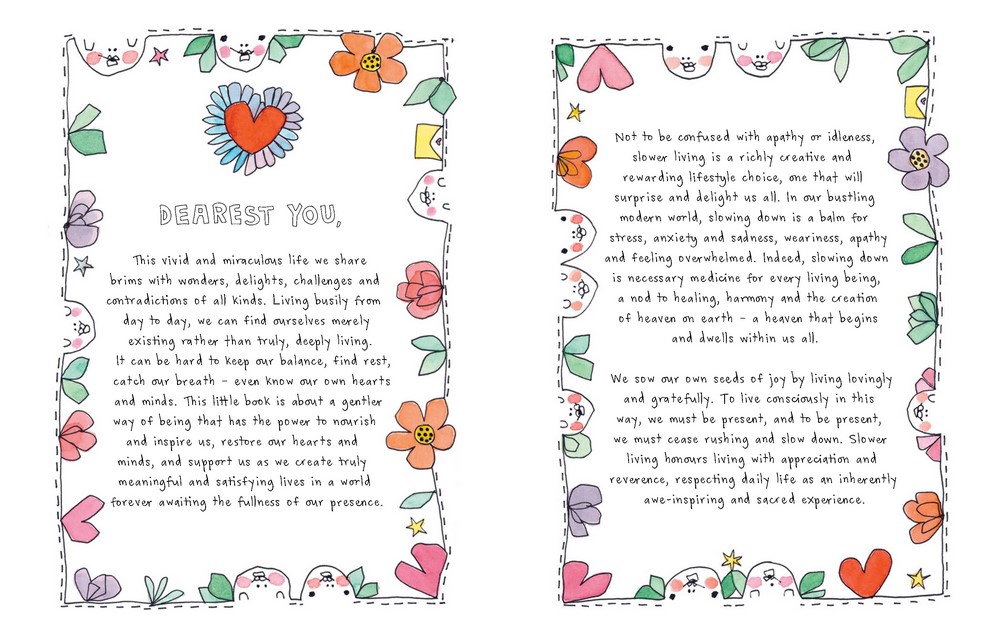 DEAREST YOU,
This vivid and miraculous life we share
brims with wonders, delights, challenges and
contradictions of all kinds. Living busily from
day to day, we can find ourselves merely
existing rather than truly, deeply living.
It can be hard to keep our balance, find rest,
catch our breath – even know our own hearts
and minds. This little book is about a gentler
way of being that has the power to nourish
and inspire us, restore our hearts and
minds, and support us as we create truly
meaningful and satisfying lives in a world
forever awaiting the fullness of our presence.
Not to be confused with apathy or idleness,
slower living is a richly creative and
rewarding lifestyle choice, one that will
surprise and delight us all. In our bustling
modern world, slowing down is a balm for
stress, anxiety and sadness, weariness, apathy
and feeling overwhelmed. Indeed, slowing down
is necessary medicine for every living being,
a nod to healing, harmony and the creation
of heaven on earth – a heaven that begins
and dwells within us all.
We sow our own seeds of joy by living lovingly
and gratefully. To live consciously in this
way, we must be present, and to be present,
we must cease rushing and slow down. Slower
living honours living with appreciation and
reverence, respecting daily life as an inherently
awe-inspiring and sacred experience.